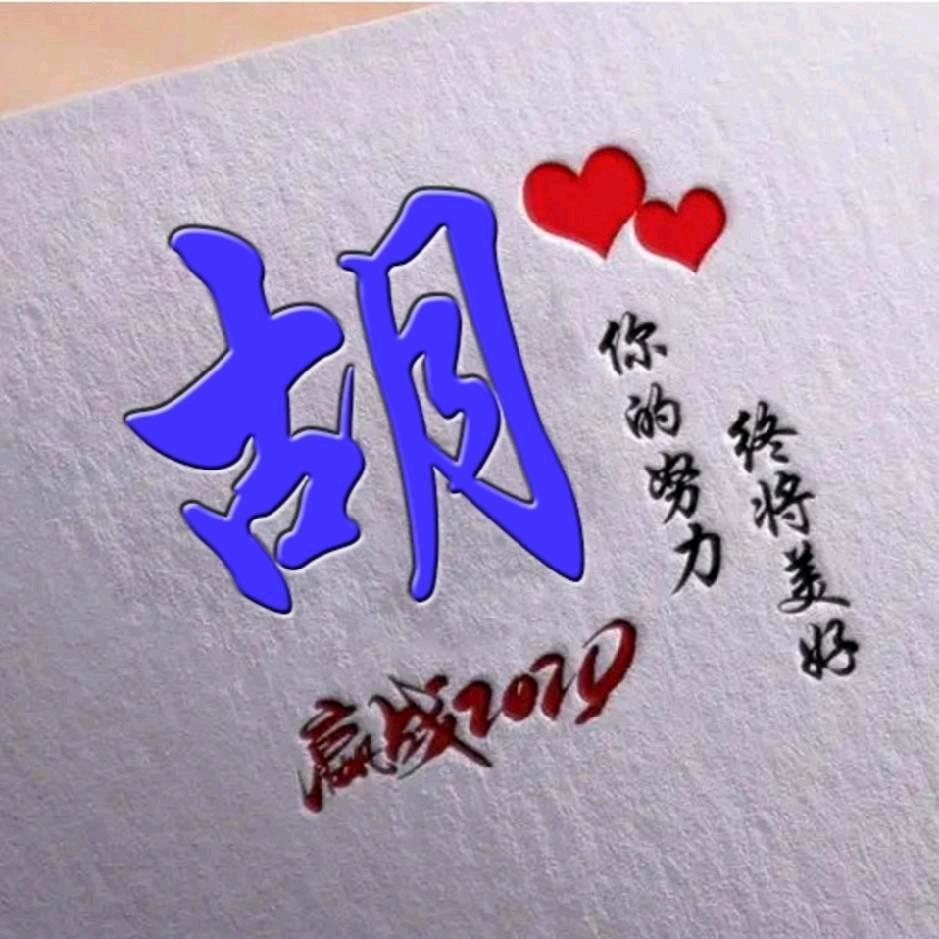 胡
你的努力
终将美好
赢战2020